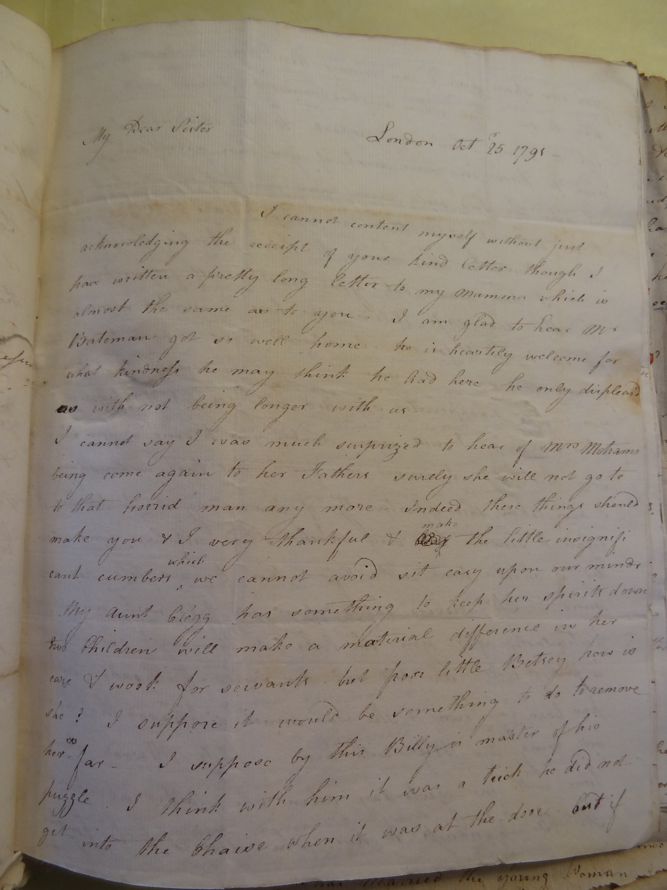 My Dear Sister
London Octr 25 1795
I cannot content myself without just
acknowledging the receipt of your kind letter though I
have written a pretty long letter to my Mamma which is
almost the same as to you. I am glad to hear Mr
Bateman got so well home. he is heartily welcome for
what kindness he may think he had here he only displeased
us with not being longer with us
I cannot say I was much surprized to hear of Mrs
being come again to her Fathers surely she will not go to
to that horrid man any more. Indeed these things should
make you & I very thankful & make the little insignifi
cant cumbers which we cannot avoid sit easy upon our minds.
My aunt Clegg has something to keep her spirits down
two Children will make a material difference in her
care & work for servants but poor little Betsey how is
she? I suppose it would be something to do to remove
her so far - I suppose by this Billy is master of his
puzzle. I think with him it was a trick he did not
get into the Chaise when it was at the dore. but if
the young Woman